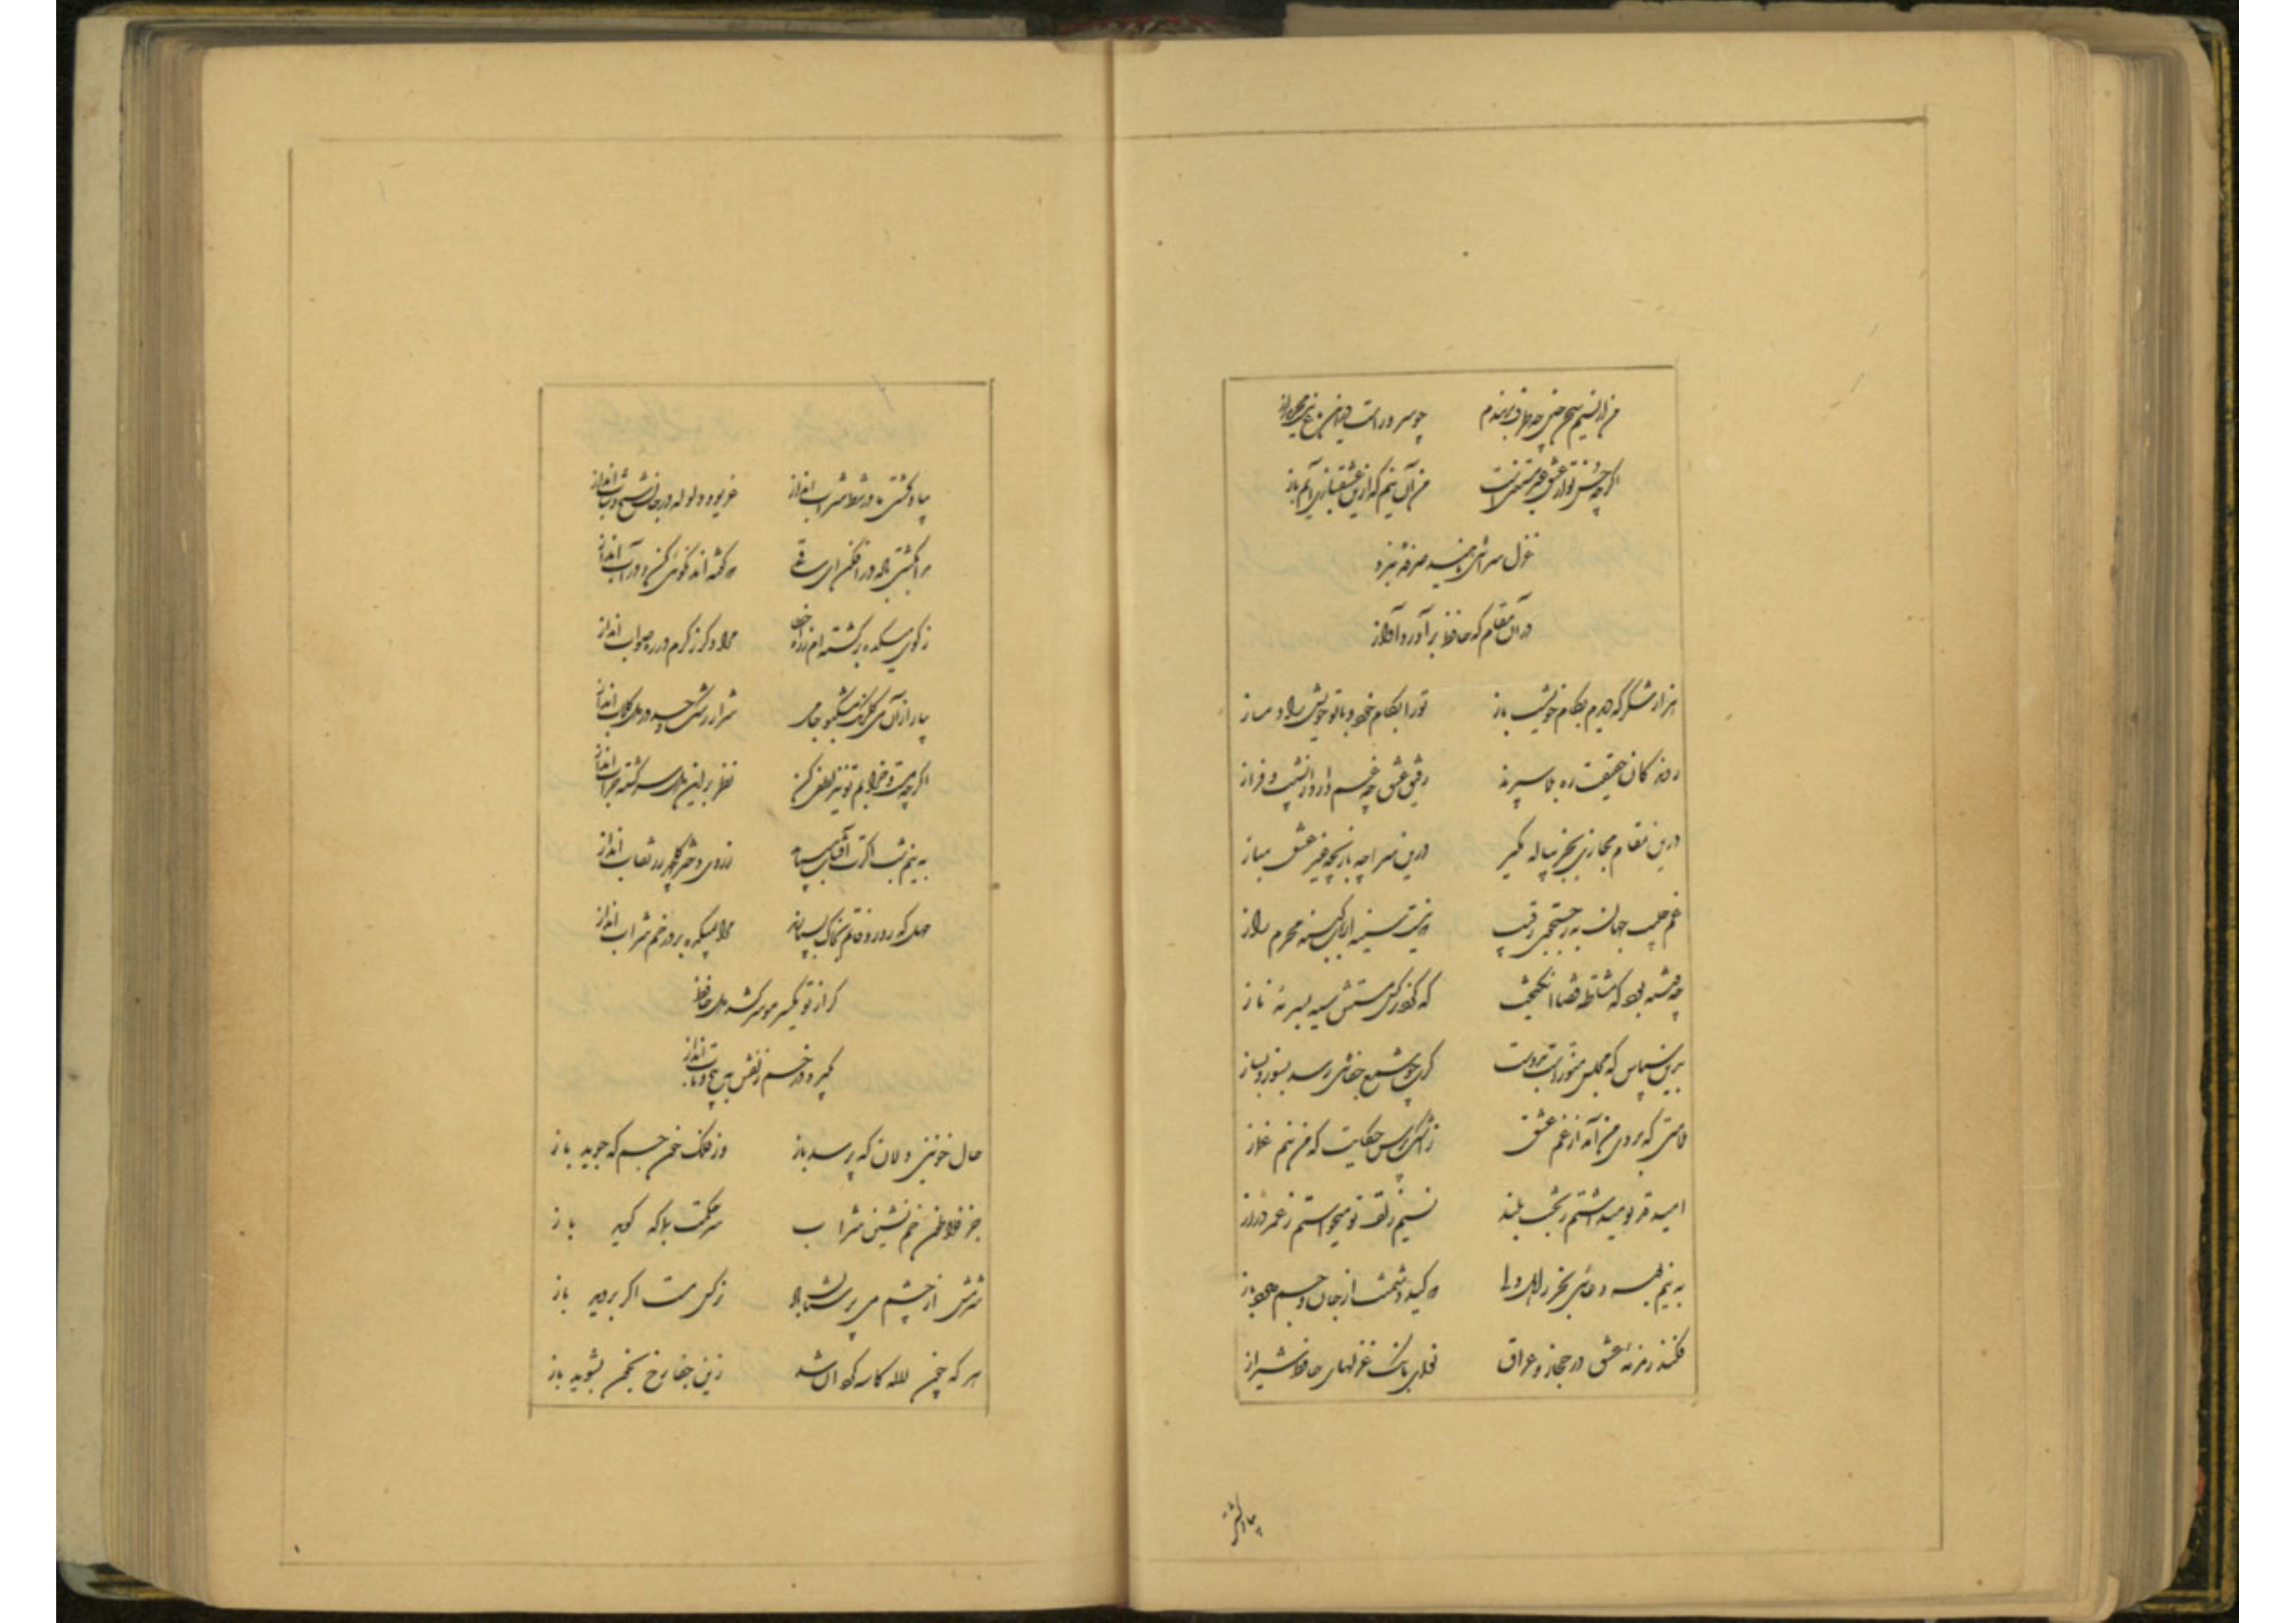 من از نسیم سخن چین چه طرف بربندم چو سرو راست درین باغ نیست محرم راز
اگرچه حسن تو از عشق غیر مستغنی است من آن نیم که ازین عشقبازی آیم باز
غزل سرائی ناهید صرفه نبرد
در آن مقام که حافظ برآورد آواز
هزار شکر که دیدم بکام خویشت باز تو را بکام خود و با تو خویش را دمساز
روندگان حقیقت ره بلا سپرند رفیق عشق چه غم دارد از نشیب و فراز
درین مقام مجازی بجز پیاله مگیر درین سراچه بازیچه غیر عشق مباز
غم حبیب نهان به ز جستجوی رقیب که نیست سینه ارباب کینه محرم راز
چه فتنه بود که مشاطه قضا انگیخت که کرد نرگس مستش سیه بسرمه ناز
بدین سپاس که مجلس منورست بدوست گرت چو شمع جفائی رسد بسوز و بساز
که من نیم غماز
امید قد تو میداشتم ز بخت بلند نسیم زلف تو میخواستم ز عمر دراز
به نیم بوسه دعائی بخر ز اهل دلی که کید دشمنت از جان و جسم دارد باز
فکند زمزمه عشق در حجاز و عراق نوای بانگ غزلهای حافظ شیراز
بیا و کشتی
بیا و کشتی ما در شط شراب انداز غریو و ولوله در جان شیخ و شاب انداز
مرا بکشتی باده درافکن ای ساقی که گفته‌اند نکوئی کن و در آب انداز
ز کوی میکده برگشته‌ام ز راه خطا مرا دگر ز کرم در ره صواب انداز
بیار از آن می گلرنگ مشکبو جامی شرار رشک و حسد در دل گلاب انداز
اگرچه مست و خرابم تو نیز لطفی کن نظر برین دل سرگشته خراب انداز
به نیم شب اگرت آفتاب میباید ز روی دختر گلچهر رز نقاب انداز
مهل که روز وفاتم بخاک بسپارند مرا بمیکده بر در خم شراب انداز
گر از تو یکسر مو سرکشد دل حافظ
بگیر و در خم زلفش به پیچ و تاب انداز
حال خونین دلان که پرسد باز وز فلک خون جم که جوید باز
جز فلاطون خم نشین شراب سر حکمت بما که گوید باز
شرمش از چشم می پرستان باد نرگس مست اگر بروید باز
هر که چون لاله کاسه گردان شد زین جفا رخ بخون بشوید باز